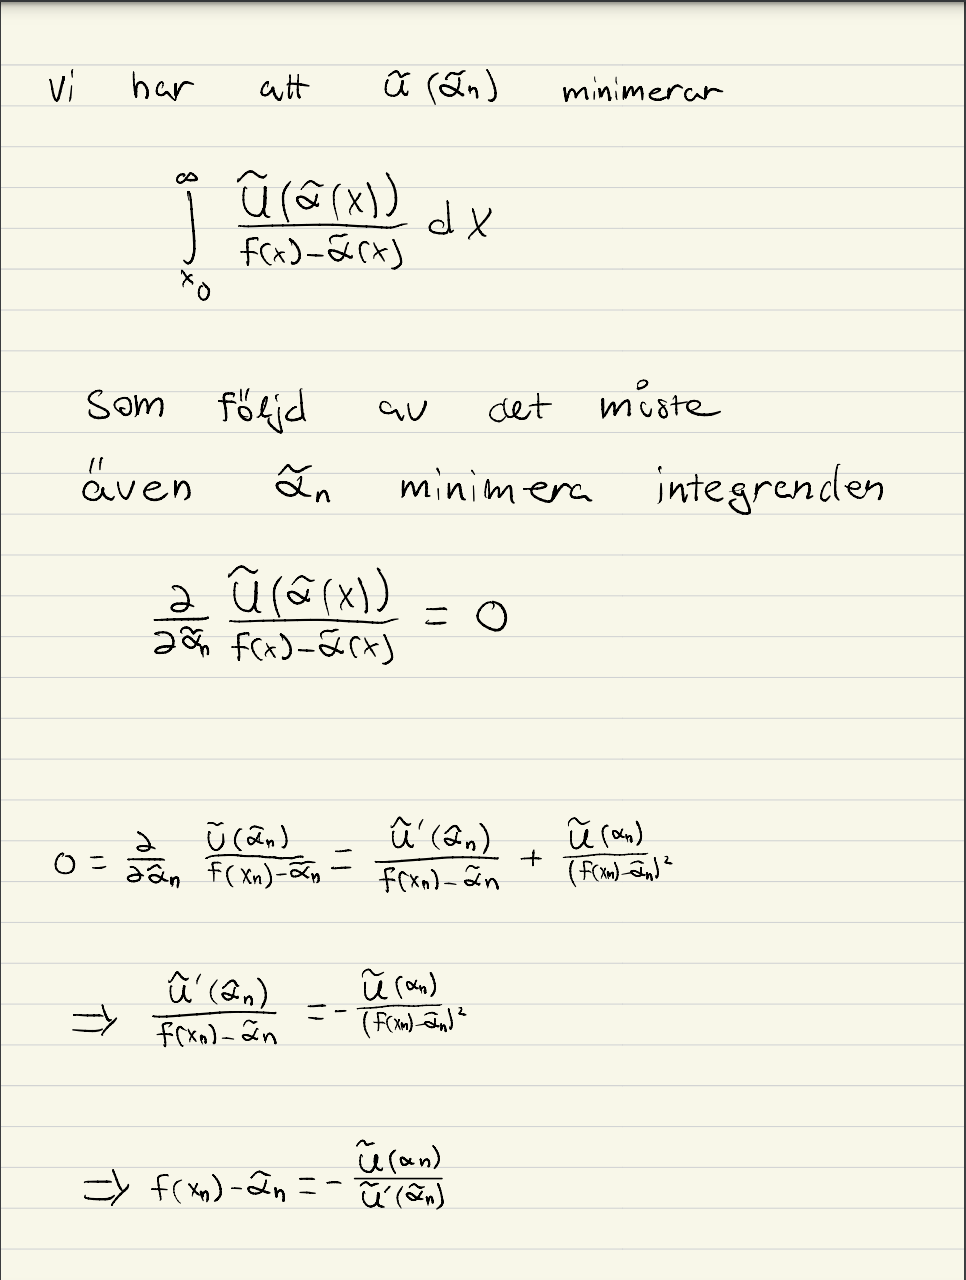 Vi har att ũ(α̃n) minimerar
∫_{x_0}^{∞} Ũ(α̃(x)) / (f(x)-α̃(x)) dx
Som följd av det måste
även α̃n minimera integranden
∂/∂α̃n Ũ(α̃(x)) / (f(x)-α̃(x)) = 0
0 = ∂/∂α̃n Ũ(α̃n) / (f(xn)-α̃n) = ũ'(α̃n) / (f(xn)-α̃n) + ũ(αn) / (f(xn)-α̃n)²
⇒ ũ'(α̃n) / (f(xn)-α̃n) = - ũ(αn) / (f(xn)-α̃n)²
⇒ f(xn)-α̃n = - ũ(αn) / ũ'(α̃n)